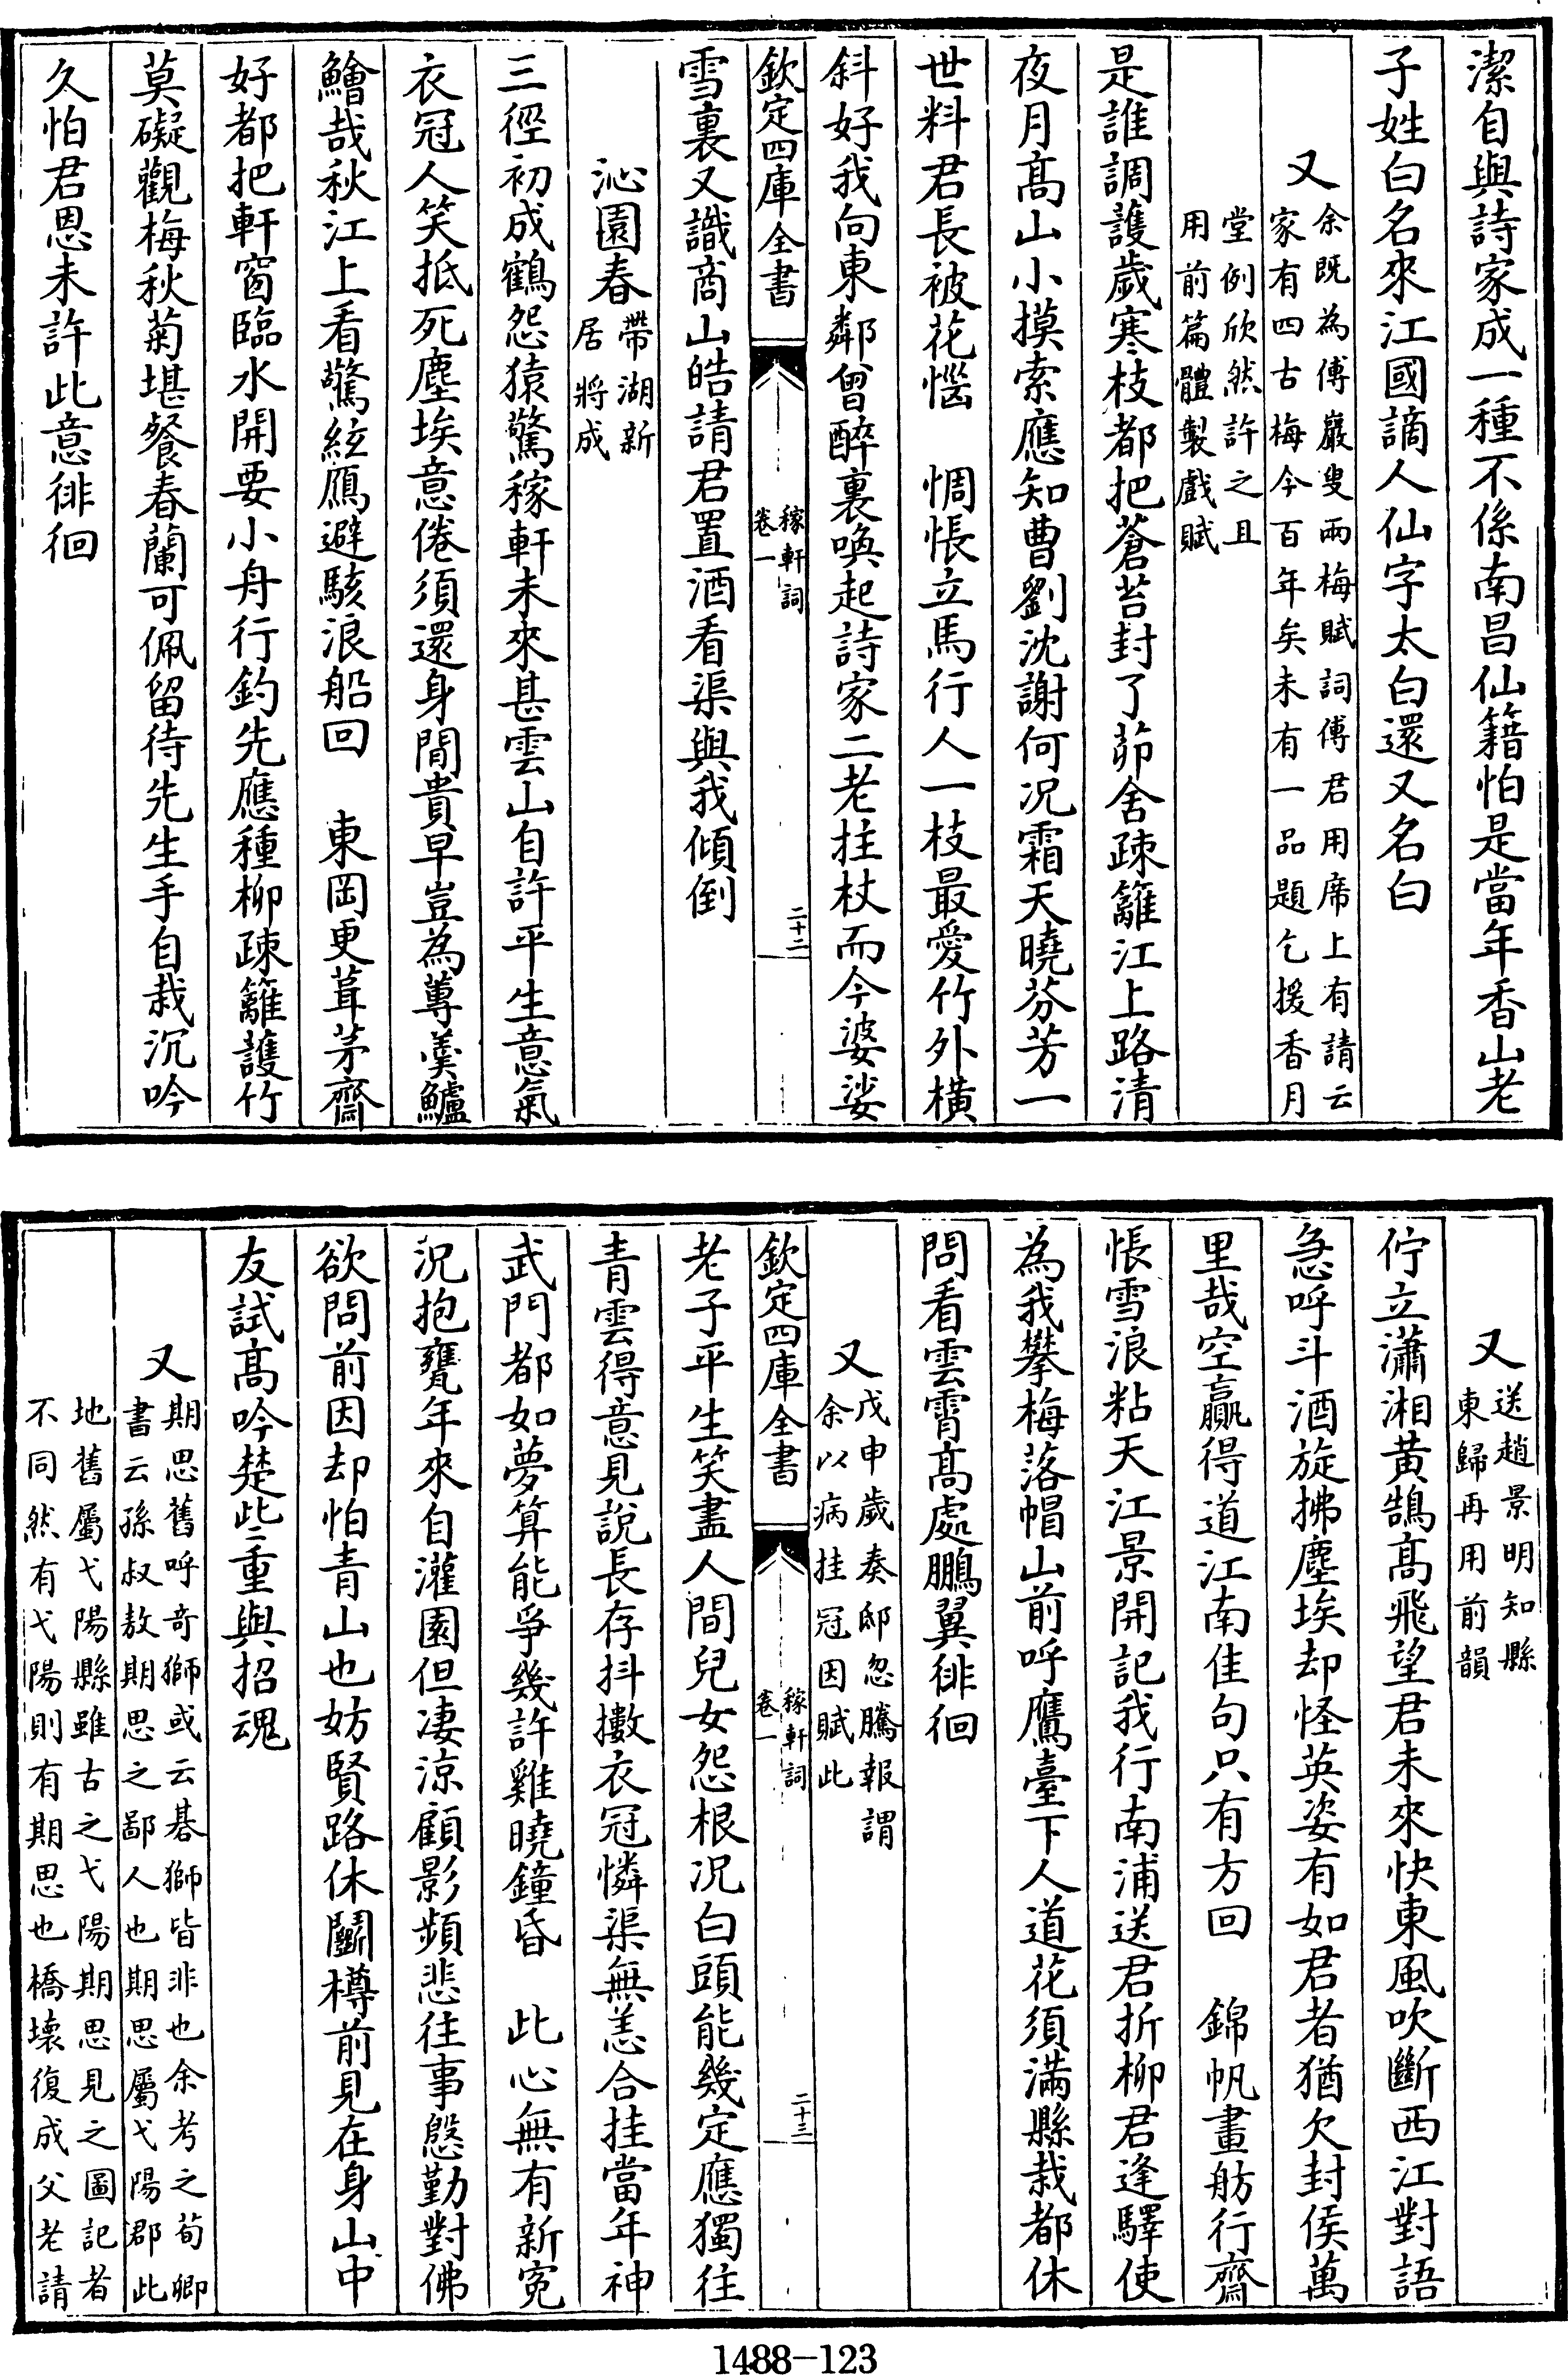 潔自與詩家成一種不係南昌仙籍怕是當年香山老
子姓白名來江國謫人仙字太白還又名白
又
余既為傅巖叟兩梅賦詞傅君用席上有請云
家有四古梅今百年矣未有一品題乞援香月
堂例欣然許之且
用前篇體製戲賦
是誰調護歲寒枝都把蒼苔封了茆舍疎籬江上路清
夜月高山小摸索應知曹劉沈謝何况霜天曉芬芳一
世料君長被花惱　惆悵立馬行人一枝最愛竹外橫
斜好我向東鄰曾醉裏喚起詩家二老拄杖而今婆娑
欽定四庫全書
稼軒詞
卷一
二十二
雪裏又識商山皓請君置酒看渠與我傾倒
沁園春
帶湖新
居將成
三徑初成鶴怨猿驚稼軒未來甚雲山自許平生意氣
衣冠人笑抵死塵埃意倦須還身閒貴早豈為蓴羹鱸
鱠哉秋江上看驚絃鴈避駭浪船回　東岡更葺茅齋
好都把軒窗臨水開要小舟行釣先應種柳疎籬護竹
莫礙觀梅秋菊堪餐春蘭可佩留待先生手自栽沉吟
久怕君恩未許此意徘徊
又
送趙景明知縣
東歸再用前韻
佇立瀟湘黃鵠高飛望君未來快東風吹斷西江對語
急呼斗酒旋拂塵埃却怪英姿有如君者猶欠封侯萬
里哉空贏得道江南佳句只有方回　錦帆畫舫行齋
悵雪浪粘天江景開記我行南浦送君折柳君逢驛使
為我攀梅落帽山前呼鷹臺下人道花須滿縣栽都休
問看雲霄高處鵬翼徘徊
又
戊申歲奏邸忽騰報謂
余以病挂冠因賦此
欽定四庫全書
稼軒詞
卷一
二十三
老子平生笑盡人間兒女怨根况白頭能幾定應獨往
青雲得意見說長存抖擻衣冠憐渠無恙合挂當年神
武門都如夢算能爭幾許雞曉鐘昏　此心無有新寃
况抱甕年來自灌園但凄涼顧影頻悲往事慇勤對佛
欲問前因却怕青山也妨賢路休鬭樽前見在身山中
友試高吟楚些重與招魂
又
期思舊呼奇獅或云碁獅皆非也余考之荀卿
書云孫叔敖期思之鄙人也期思屬弋陽郡此
地舊屬弋陽縣雖古之弋陽期思見之圖記者
不同然有弋陽則有期思也橋壞復成父老請
1488-123